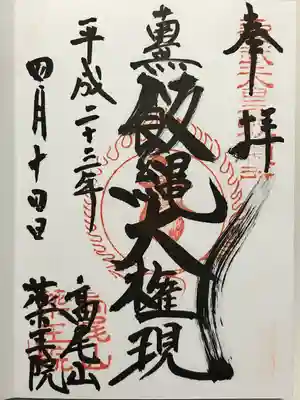 奉拝
飯縄大権現
高尾山
薬王院
平成二十三年
四月十四日